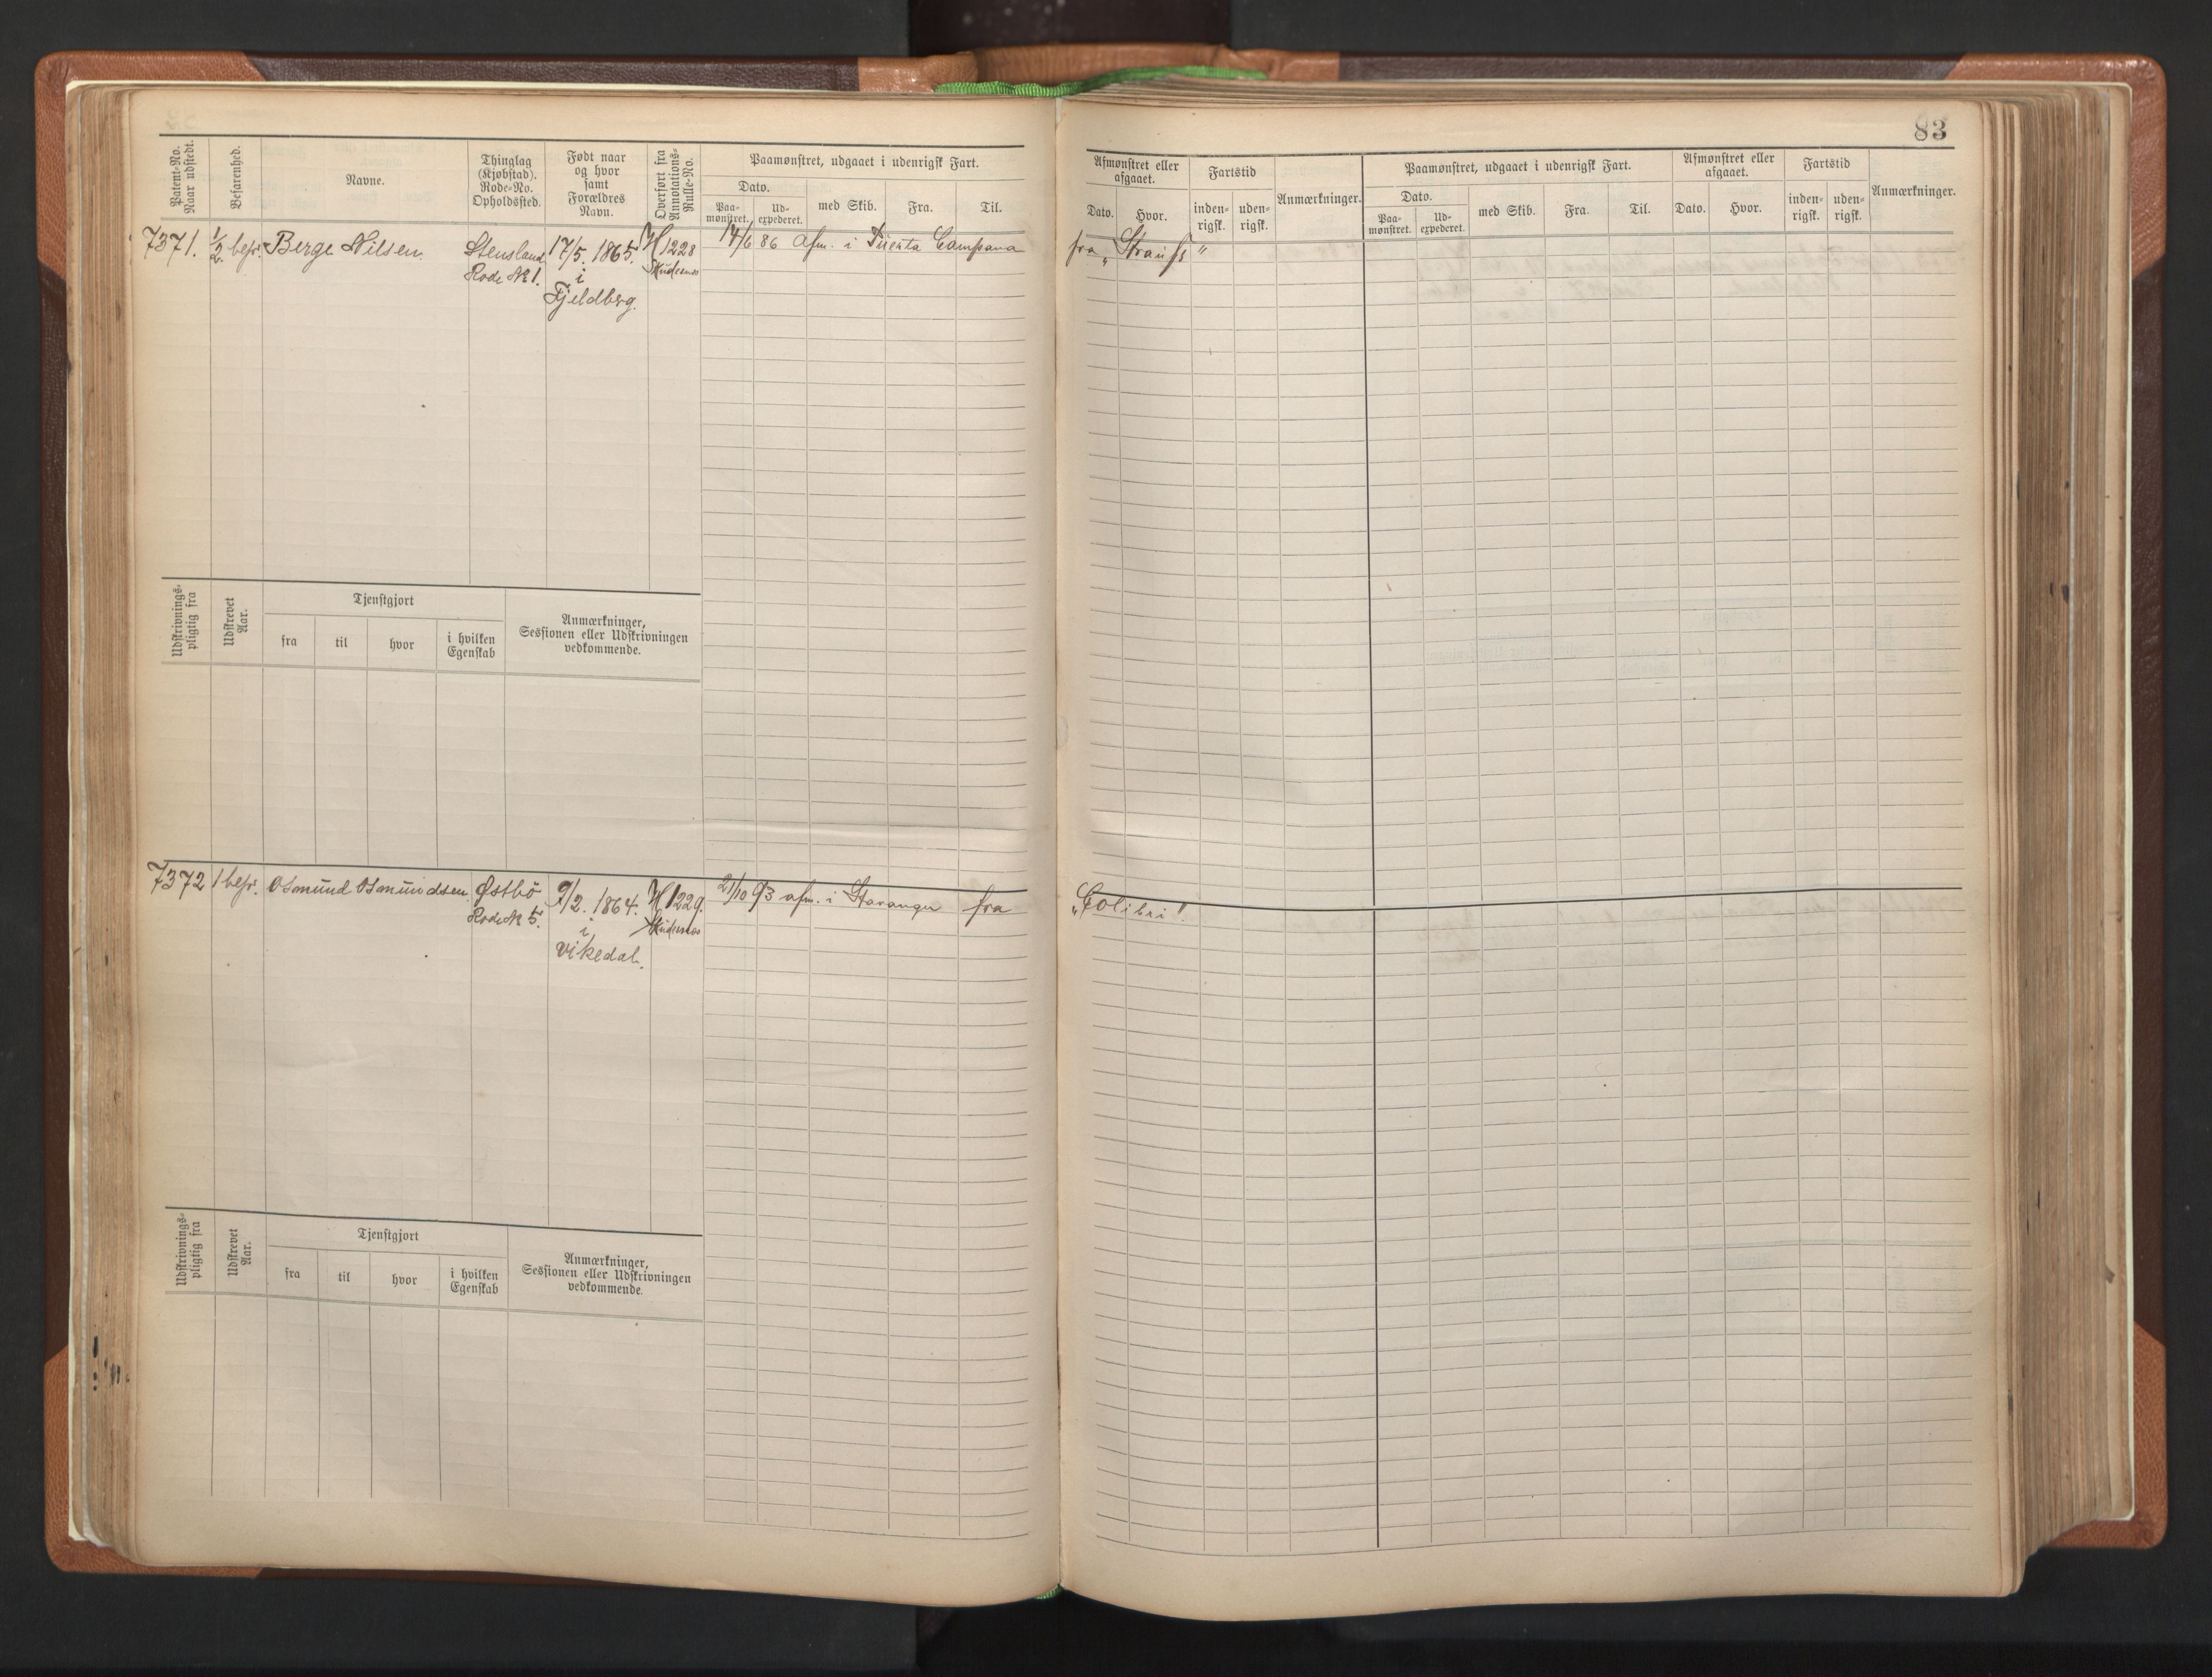 83
Patent-No. Naar udstedt.
Befarenhed.
Navne.
Thinglag (Kjøbstad). Rode-No. Opholdssted.
Født naar og hvor samt Forældres Navn.
Overført fra Annotations-Rulle-No.
Paamønstret, udgaaet i udenrigsk Fart.
Dato.
Paa-mønstret.
Ud-expederet.
med Skib.
Fra.
Til.
Afmønstret eller afgaaet.
Dato.
Hvor.
Fartstid
inden-rigsk.
uden-rigsk.
Anmærkninger.
Paamønstret, udgaaet i udenrigsk Fart.
Dato.
Paa-mønstret.
Ud-expederet.
med Skib.
Fra.
Til.
Afmønstret eller afgaaet.
Dato.
Hvor.
Fartstid
inden-rigsk.
uden-rigsk.
Anmærkninger.
7371. 1/2 befr. Berge Nilsen. Stensland 17/5. 1865. H 1228 14/6 86 afm. i Campana fra „Strauss"
Rode No 1. i
Fjeldberg.
Udskrivnings-pligtig fra
Udskrevet Aar.
Tjenstgjort
fra
til
hvor
i hvilken Egenskab
Anmærkninger,
Sessionen eller Udskrivningen
vedkommende.
7372 1 befr. Osmund Osmundsen. Østbö 9/2. 1864. H 1229. 21/10 93 afm. i Stavanger fra „Colibri".
Rode No 5. i
Vikedal.
Udskrivnings-pligtig fra
Udskrevet Aar.
Tjenstgjort
fra
til
hvor
i hvilken Egenskab
Anmærkninger,
Sessionen eller Udskrivningen
vedkommende.